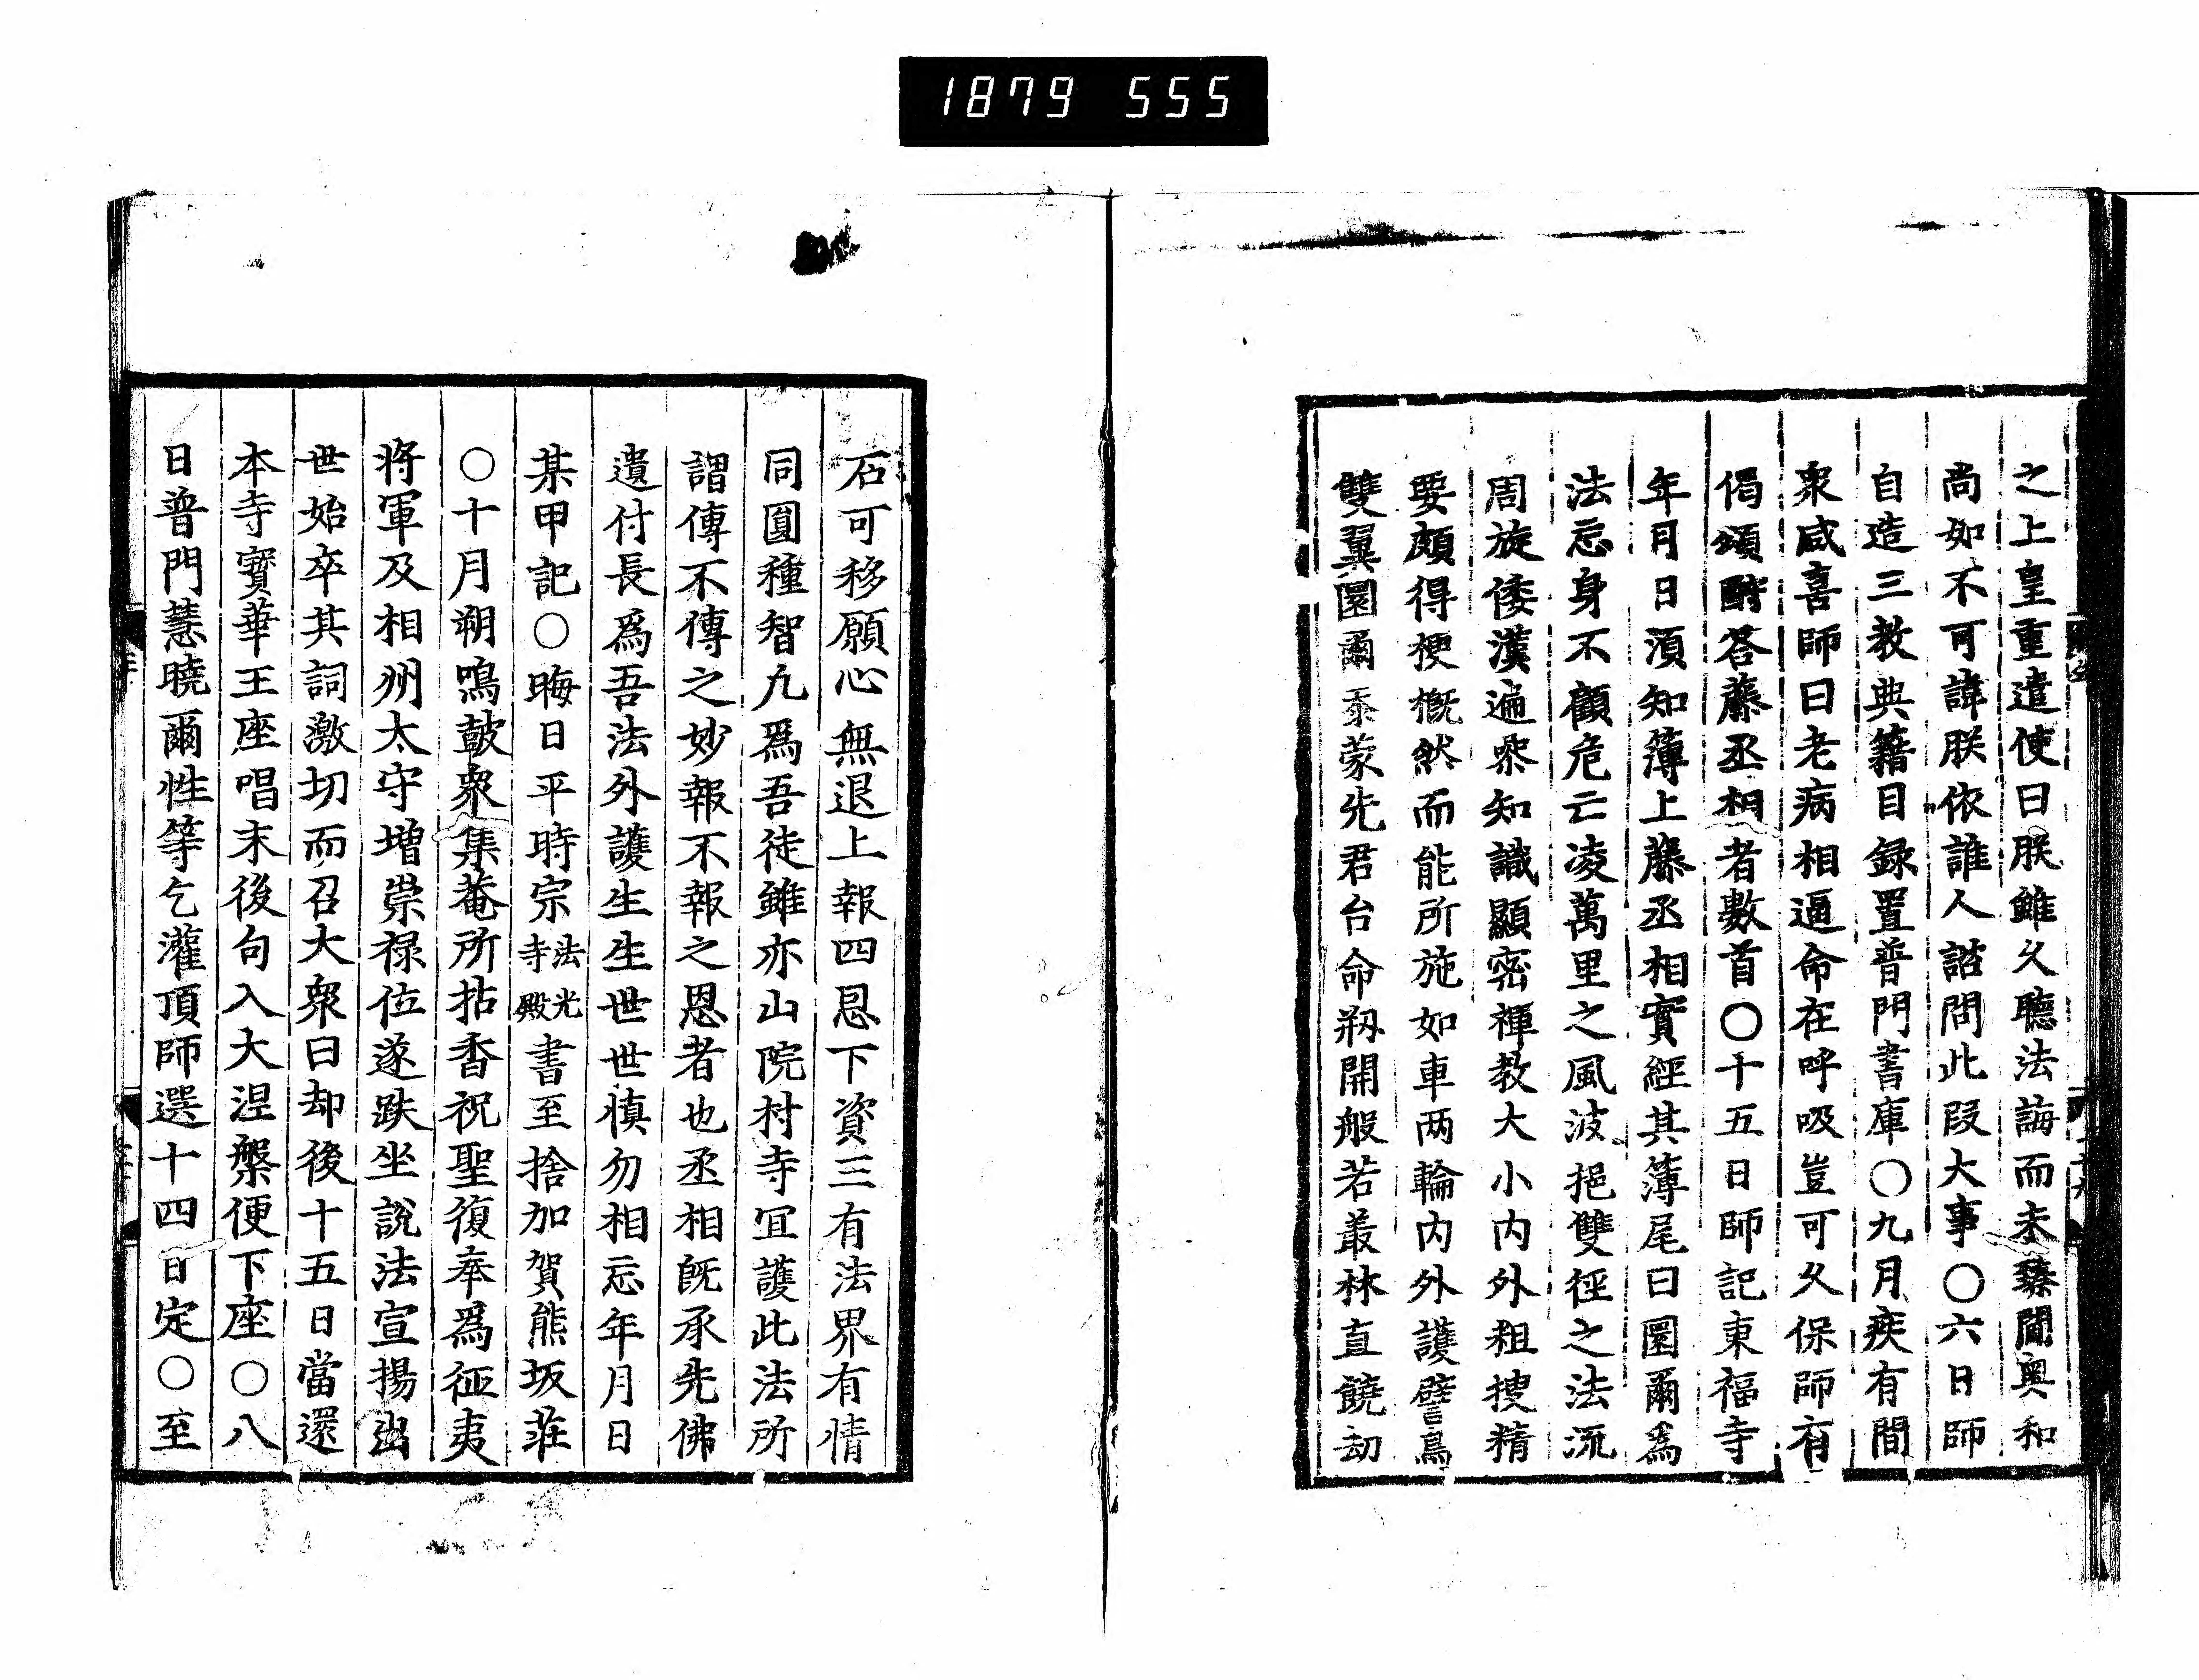 1879 555
之上皇重遣使曰朕雖久聽法誨而未臻閫奥和
尚如不可諱朕依誰人諮問此段大事〇六日師
自造三教典籍目録置普門書庫〇九月疾有間
衆咸喜師曰老病相逼命在呼吸豈可久保師有
偈頌酧答藤丞相者數首〇十五日師記東福寺
年月日湏知簿上藤丞相實經其簿尾曰圜爾爲
法忘身不顧危亡凌萬里之風波挹雙徑之法流
周旋倭漢遍衆知識顯密禅教大小内外粗捜精
要頗得梗概然而能所施如車两輪内外護譬鳥
雙翼圜爾忝蒙先君台命剏開般若叢林直饒劫
石可移願心無退上報四恩下資三有法界有情
同圓種智凡爲吾徒雖亦山院村寺宜護此法所
謂傳不傳之妙報不報之恩者也丞相既承先佛
遺付長爲吾法外護生生世世慎勿相忘年月日
某甲記〇晦日平時宗法光寺殿書至捨加賀熊坂莊
〇十月朔鳴鼓衆集菴所拈香祝聖復奉爲征夷
將軍及相州太守増崇禄位遂趺坐說法宣揚出
世始卒其詞激切而召大衆曰却後十五日當還
本寺寳華王座唱末後句入大涅槃便下座〇八
日普門慧曉爾性等乞灌頂師選十四日定〇至